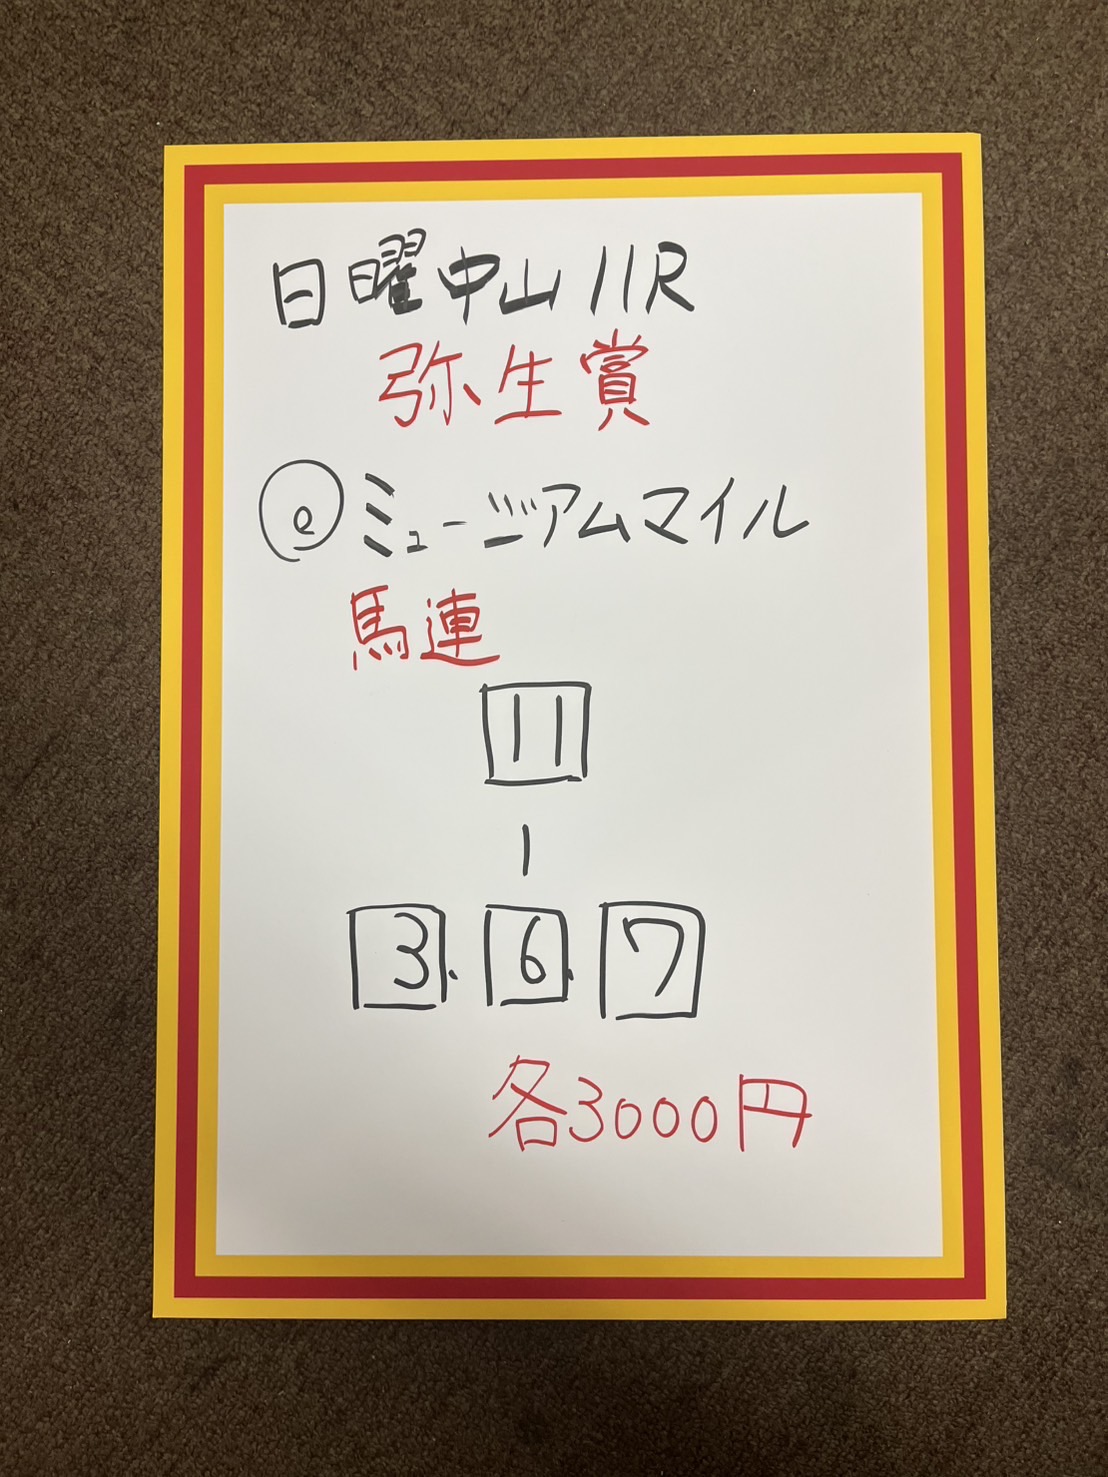 日曜中山11R
弥生賞
◎ミュージアムマイル
馬連
11
|
3.6.7
各3000円